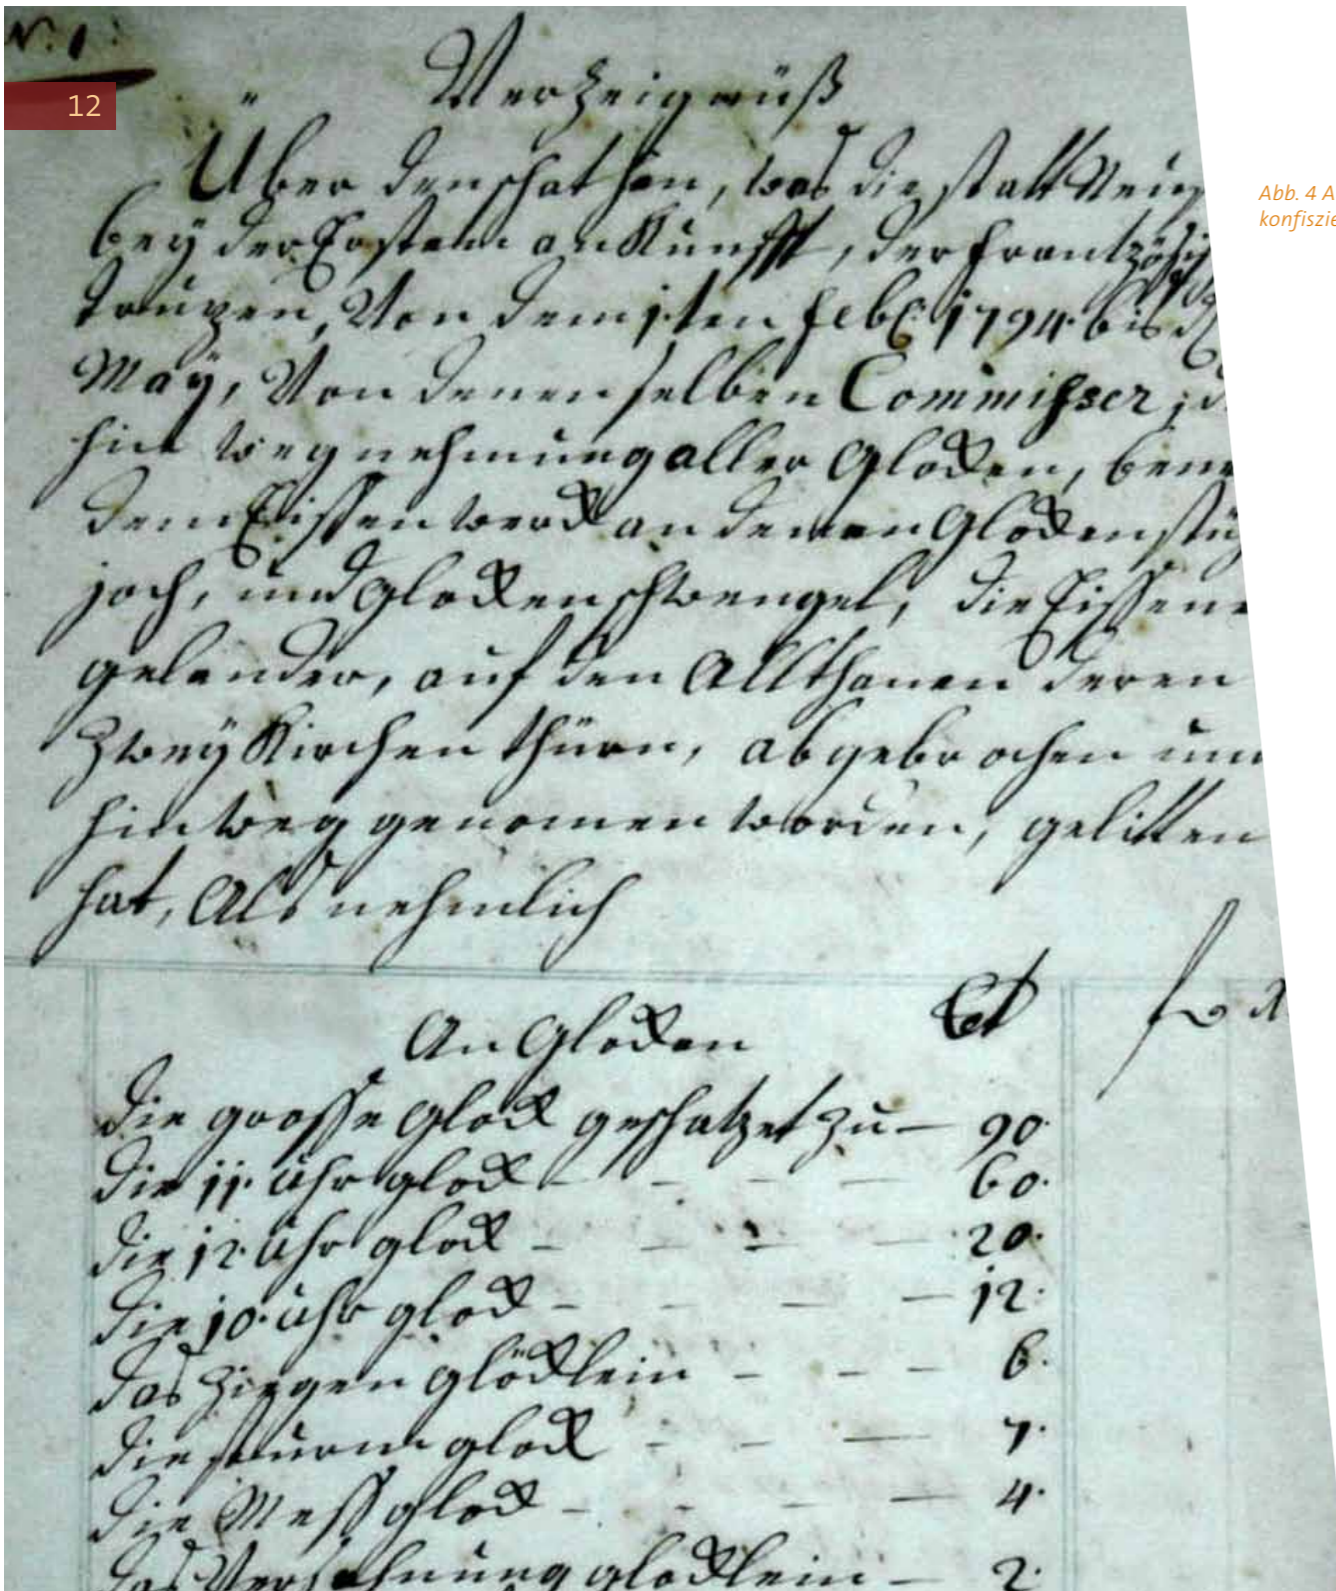 N: 1:
12
Verzeignüß
Über den schathen, was die statt Neu
bey der Ersten an Kunfft, der frantzösi
trupen, Von dem 1ten feb: 1794 bis d
May, Von denen selben Commisser; d
hin wegnehmung aller Glocken, bene
dem Eissen werck an denen Glocken stü
joch, und Glocken schwengel, die Eissene
gelander, auf den Allthanen deren
Zwey Kirchen thürn, abgebrochen un
hinweg genomen worden, gelitten
hat, Als nehmlich
An Glocken Ct
die grosse Glock geschatzet zu — 90.
die 11. Uhr glock - - - — 60.
die 12. Uhr glock - - - — 20.
die 10. uhr glock - - - — 12.
das Ziegen glöcklein - - - 6.
die sturm glock - - — 7.
die Mess glock - - - — 4.
das Versehnung glöcklein — 2.
Abb. 4 A
konfiszie